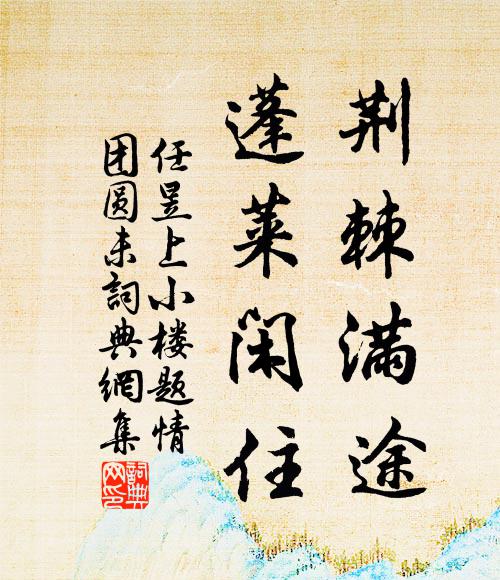 荆棘满途
蓬莱闲住
任昱上小楼题情
团圆未詞典網集
詞典网印